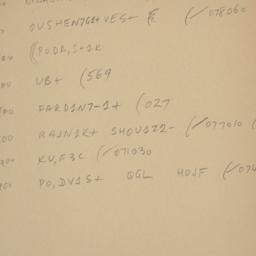 OUSHEN7G1+VES+ (/078060
(PODA,S+1K
UB+ (569
FARD1N7-1+ (027
RAJN1K+ SHOU122- (/077010 (
KU,F3C (/071030
PO,DV1S+ QGL HOJF (/074